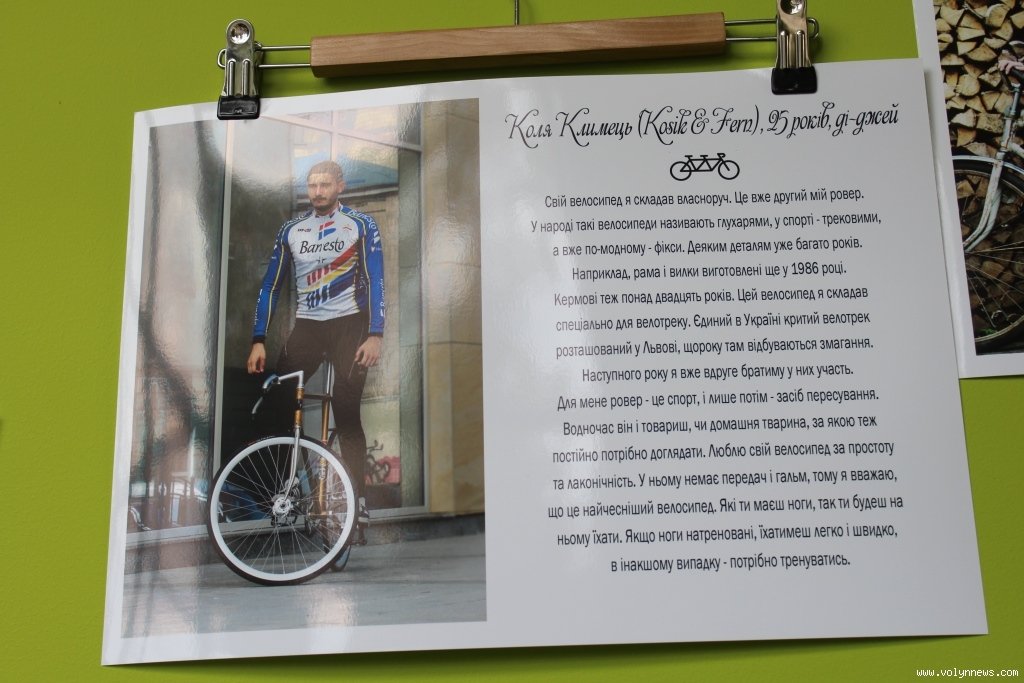 Коля Климець (Kosile & Fern), 25 років, ді-джей
Свій велосипед я складав власноруч. Це вже другий мій ровер.
У народі такі велосипеди називають глухарями, у спорті - трековими,
а вже по-модному - фікси. Деяким деталям уже багато років.
Наприклад, рама і вилки виготовлені ще у 1986 році.
Кермові теж понад двадцять років. Цей велосипед я складав
спеціально для велотреку. Єдиний в Україні критий велотрек
розташований у Львові, щороку там відбуваються змагання.
Наступного року я вже вдруге братиму у них участь.
Для мене ровер - це спорт, і лише потім - засіб пересування.
Водночас він і товариш, чи домашня тварина, за якою теж
постійно потрібно доглядати. Люблю свій велосипед за простоту
та лаконічність. У ньому немає передач і гальм, тому я вважаю,
що це найчесніший велосипед. Які ти маєш ноги, так ти будеш на
ньому їхати. Якщо ноги натреновані, їхатимеш легко і швидко,
в інакшому випадку - потрібно тренуватись.
Banesto
www.volynnews.com